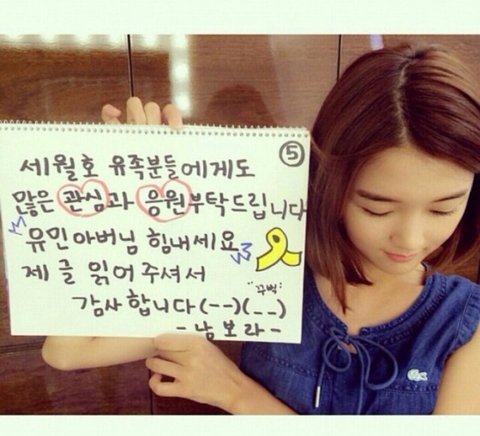 ⑤
세월호 유족분들에게도
많은 관심과 응원부탁드립니다
유민아버님 힘내세요
제 글 읽어주셔서
꾸벅
감사합니다(--)(__)
-남보라-